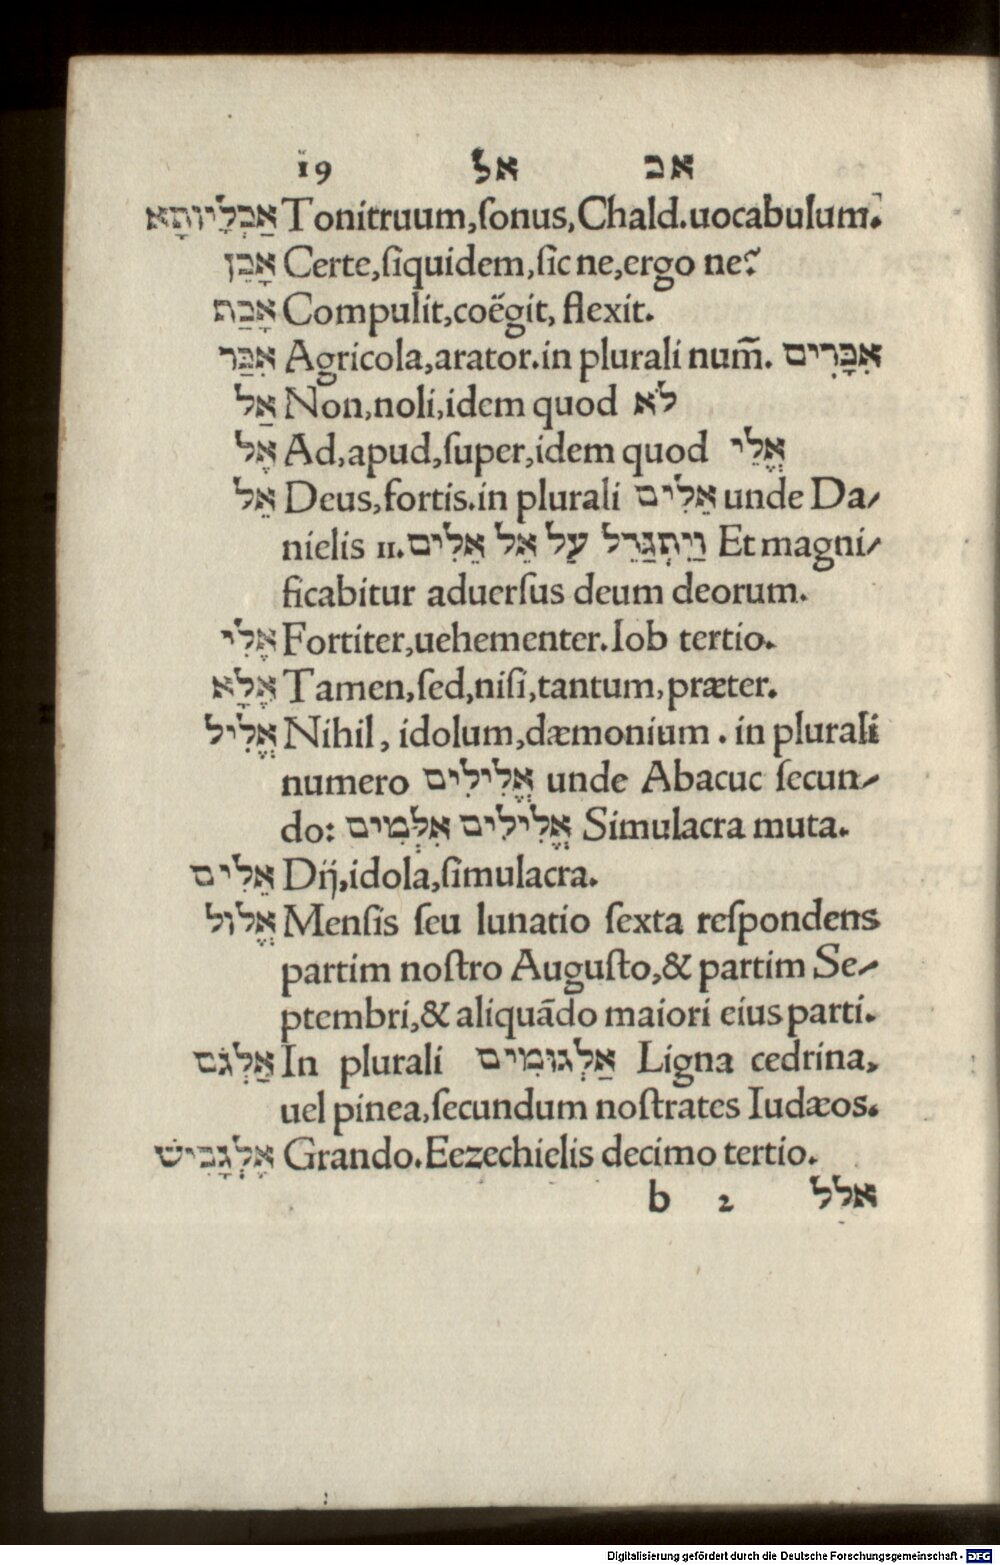 19 אל אב
אַכְלָיוּתָא Tonitruum,ſonus,Chald.uocabulum.
אָכֵן Certe,ſiquidem,ſic ne,ergo ne?
אָכַף Compulit,coëgit, flexit.
אִכַּר Agricola,arator.in plurali num̃. אִכָּרִים
אַל Non,noli,idem quod לֹא
אֶל Ad,apud,ſuper,idem quod אֱלֵי
אֵל Deus,fortis.in plurali אֵלִים unde Da⸗
nielis 11. וַיִתְגַּדֵל עַל אֵל אֵלִים Et magni⸗
ficabitur aduerſus deum deorum.
אֱלִי Fortiter,uehementer.Iob tertio.
אֶלָּא Tamen,ſed,niſi,tantum,præter.
אֱלִיל Nihil, idolum,dæmonium . in plurali
numero אֱלִילִים unde Abacuc ſecun⸗
do: אֱלִילִים אִלְּמִים Simulacra muta.
אֵלִים Dij,idola,ſimulacra.
אֱלוּל Menſis ſeu lunatio ſexta reſpondens
partim noſtro Auguſto,& partim Se⸗
ptembri,& aliquãdo maiori eius parti.
אַלְגֹּם In plurali אַלְגוּמִים Ligna cedrina,
uel pinea,ſecundum noſtrates Iudæos.
אֶלְגָּבִישׁ Grando.Eezechielis decimo tertio.
b 2 אלל
Digitalisierung gefördert durch die Deutsche Forschungsgemeinschaft - DFG